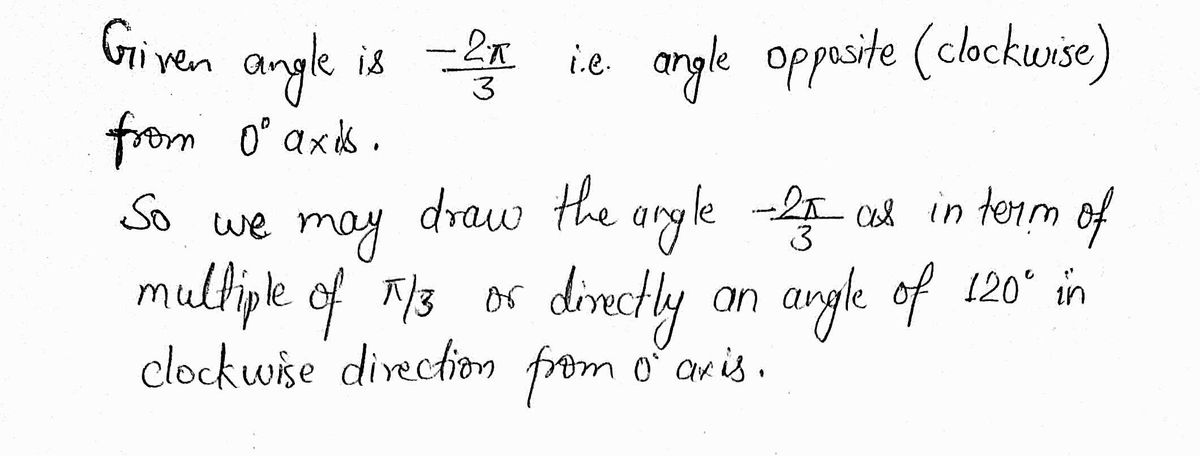 Given angle is -2π/3 i.e. angle opposite (clockwise)
from 0° axis.
So we may draw the angle -2π/3 as in term of
multiple of π/3 or directly an angle of 120° in
clockwise direction from 0° axis.